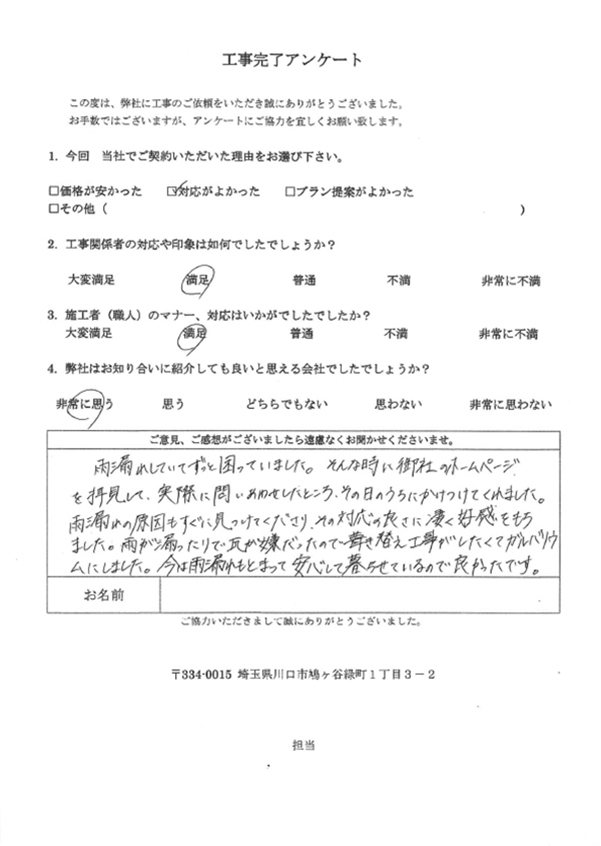 工事完了アンケート
この度は、弊社に工事のご依頼をいただき誠にありがとうございました。
お手数ではございますが、アンケートにご協力を宜しくお願い致します。
1. 今回　当社でご契約いただいた理由をお選び下さい。
□価格が安かった　☑対応がよかった　□プラン提案がよかった
□その他（　　　　　　　　　　）
2. 工事関係者の対応や印象は如何でしたでしょうか？
大変満足　満足　普通　不満　非常に不満
3. 施工者（職人）のマナー、対応はいかがでしたでしたか？
大変満足　満足　普通　不満　非常に不満
4. 弊社はお知り合いに紹介しても良いと思える会社でしたでしょうか？
非常に思う　思う　どちらでもない　思わない　非常に思わない
ご意見、ご感想がございましたら遠慮なくお聞かせくださいませ。
雨漏れしていてずっと困っていました。そんな時に御社のホームページ
を拝見して、実際に問いあわせしたところ、その日のうちにかけつけてくれました。
雨漏れの原因もすぐに見つけてくださり、その対応の良さに凄く好感をもち
ました。雨が漏ったりで瓦が嫌だったので葺き替え工事がしたくてガルバリウ
ムにしました。今は雨漏れもとまって安心して暮らせているので良かったです。
お名前
ご協力いただきまして誠にありがとうございました。
〒334-0015 埼玉県川口市鳩ヶ谷緑町１丁目３－２
担当